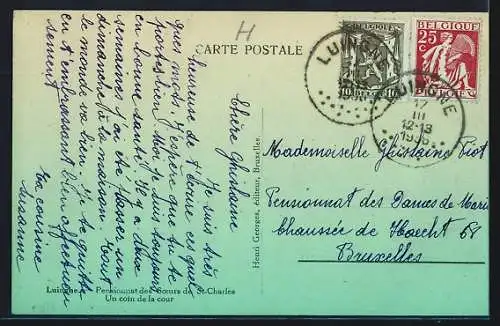 H
CARTE POSTALE
Chère Ghislaine
Je suis très
heureuse de t'écrire ces quel
ques mots. J'espère que tu te
portes bien. Moi je suis toujours
en bonne santé. Il y a deux
semaines j'ai été passer un
dimanche à la maison. Tout
le monde va bien. Je te quitte
en t'embrassant bien affectueu
sement
Ta cousine
Susanne
Luingne - Pensionnat des Sœurs de St-Charles
Un coin de la cour
Henri Georges, éditeur, Bruxelles.
BELGIQUE
10 10
BELGIQUE
25
C
BELGIE
LUINGNE
LUINGNE
17
III
12-13
1936
Mademoiselle Ghislaine Piot
Pensionnat des Dames de Marie
Chaussée de Haecht 68
Bruxelles